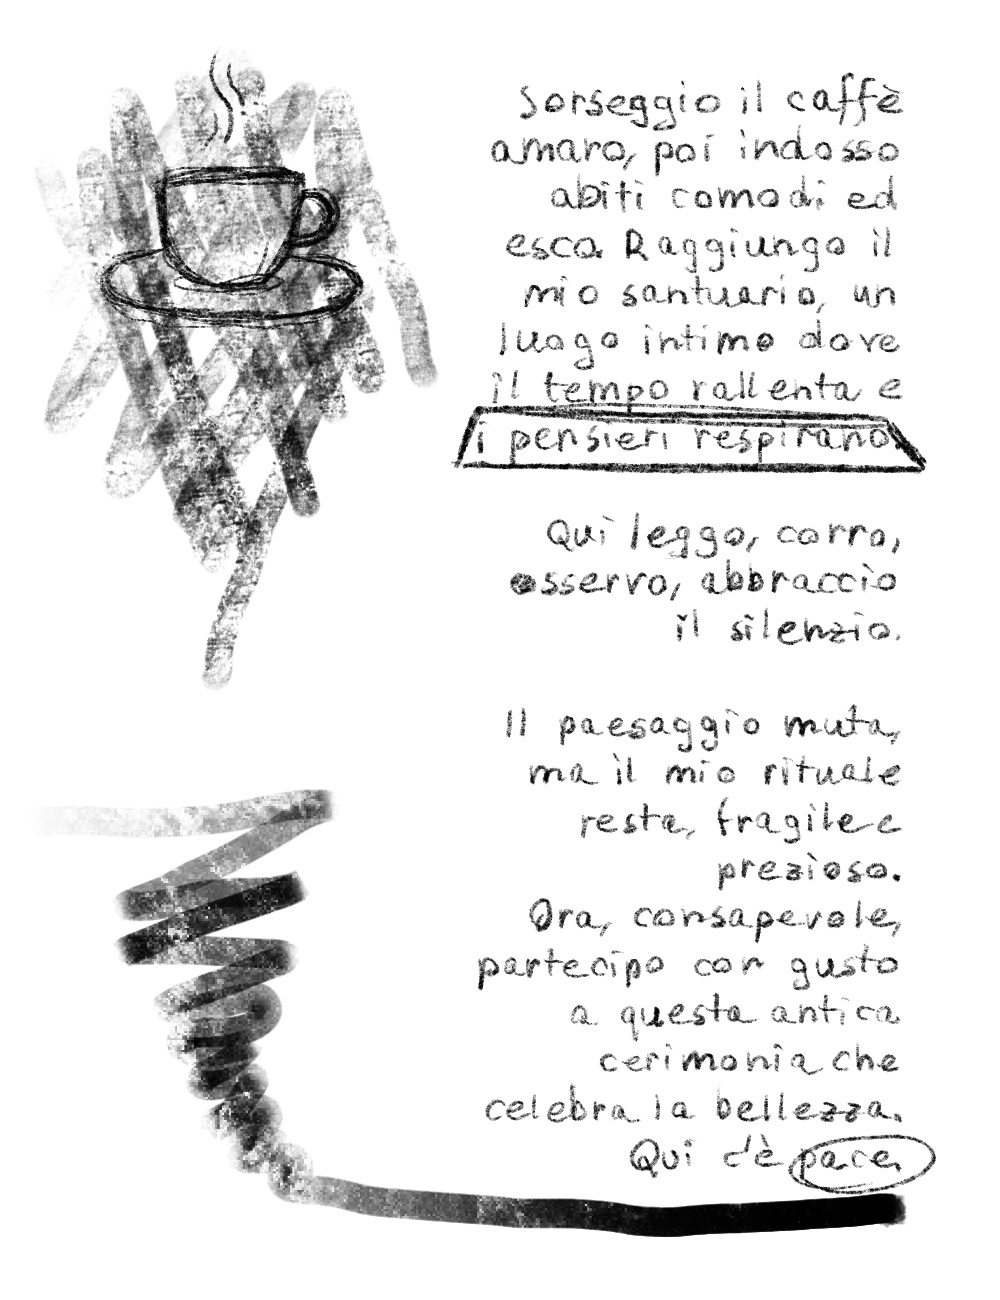 Sorseggio il caffè
amaro, poi indosso
abiti comodi ed
esco. Raggiungo il
mio santuario, un
luogo intimo dove
il tempo rallenta e
i pensieri respirano.
Qui leggo, corro,
osservo, abbraccio
il silenzio.
Il paesaggio muta,
ma il mio rituale
resta, fragile e
prezioso.
Ora, consapevole,
partecipo con gusto
a questa antica
cerimonia che
celebra la bellezza.
Qui c'è pace.